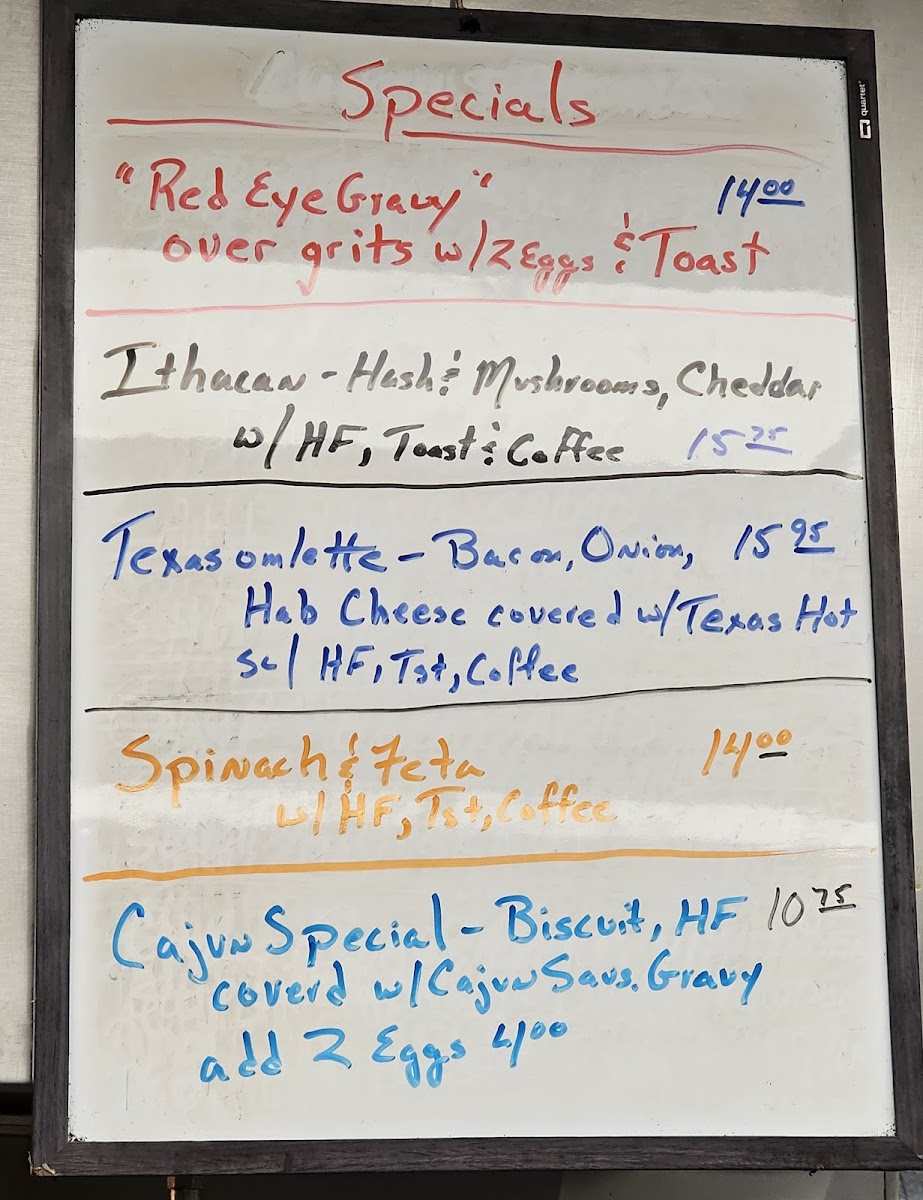 Specials
quartet
"Red Eye Gravy" 14.00
over grits w/2 Eggs & Toast
Ithacan - Hash & Mushrooms, Cheddar
w/ HF, Toast & Coffee 15.75
Texas omlette - Bacon, Onion, 15.95
Hab Cheese covered w/Texas Hot
Sc/ HF, Tst, Coffee
Spinach & Feta 14.00
w/ HF, Tst, Coffee
Cajun Special - Biscuit, HF 10.75
coverd w/Cajun Saus. Gravy
add 2 Eggs 4.00